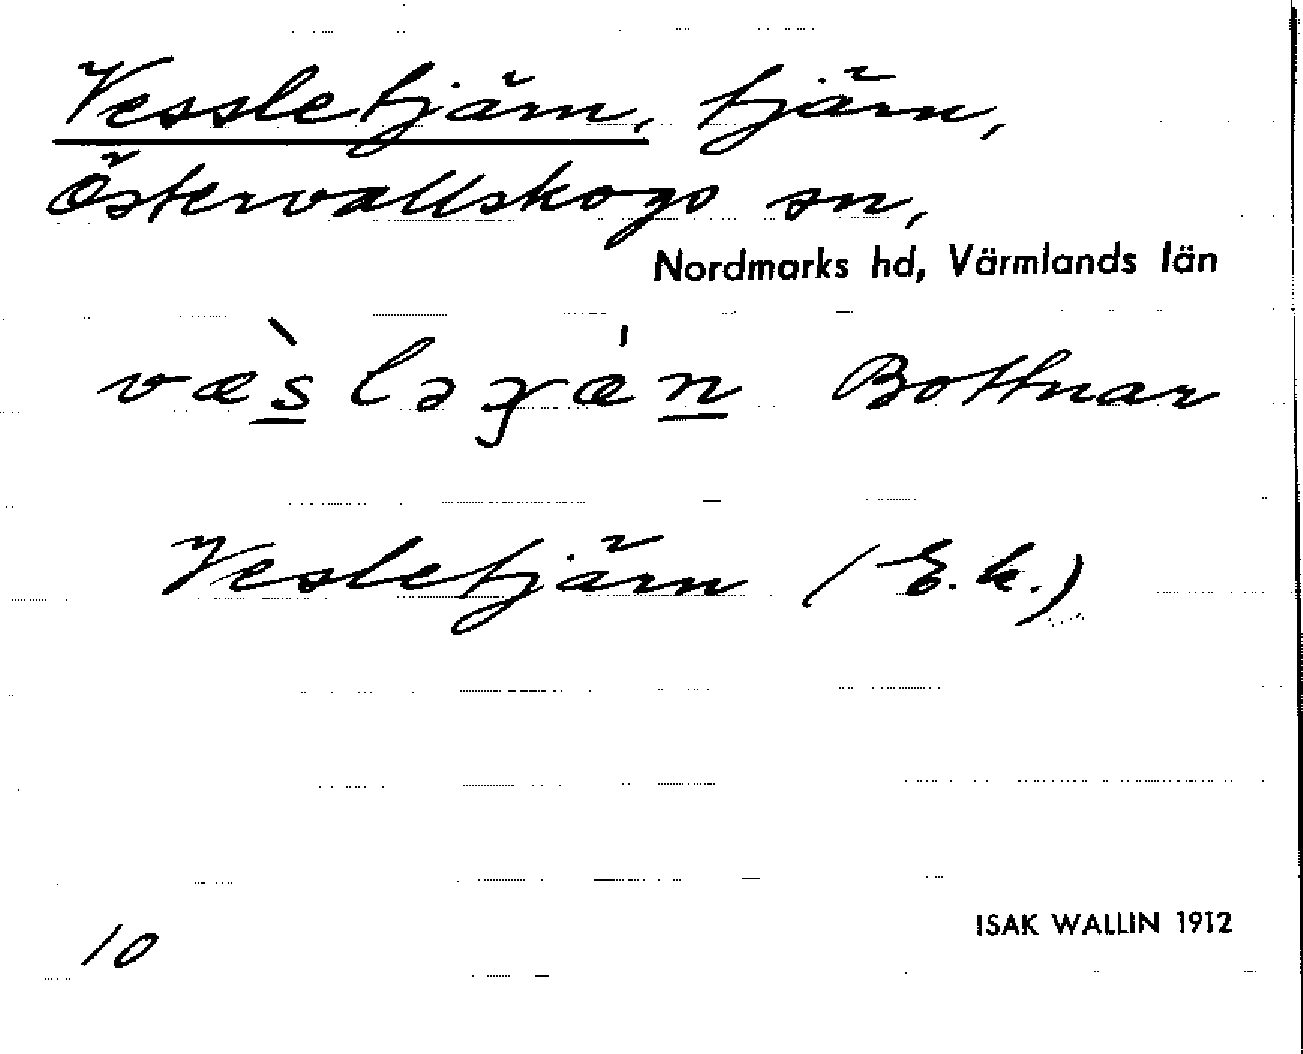 Vessletjärn, tjärn,
Östervallskogs sn,
Nordmarks hd, Värmlands län
væ̀s̲ləχǽn̲ Bottnar
Vesletjärn (E.k.)
10
ISAK WALLIN 1912